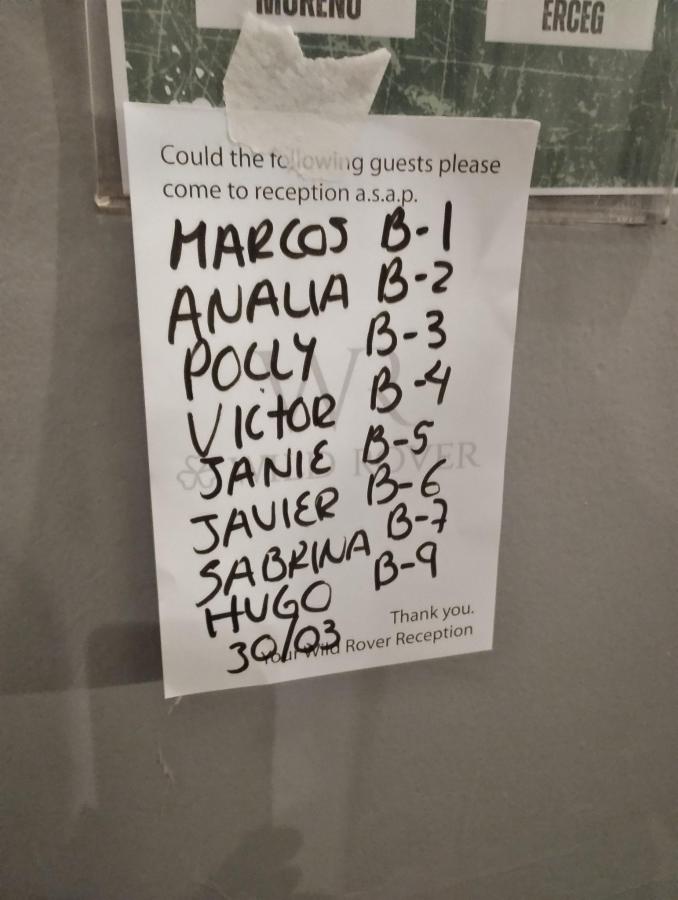 MORENO
ERCEG
Could the following guests please
come to reception a.s.a.p.
MARCOS B-1
ANALIA B-2
POLLY B-3
VICTOR B-4
JANIE B-5
JAVIER B-6
SABRINA B-7
HUGO B-9
30/03
WR
WILD ROVER
Thank you.
Your Wild Rover Reception